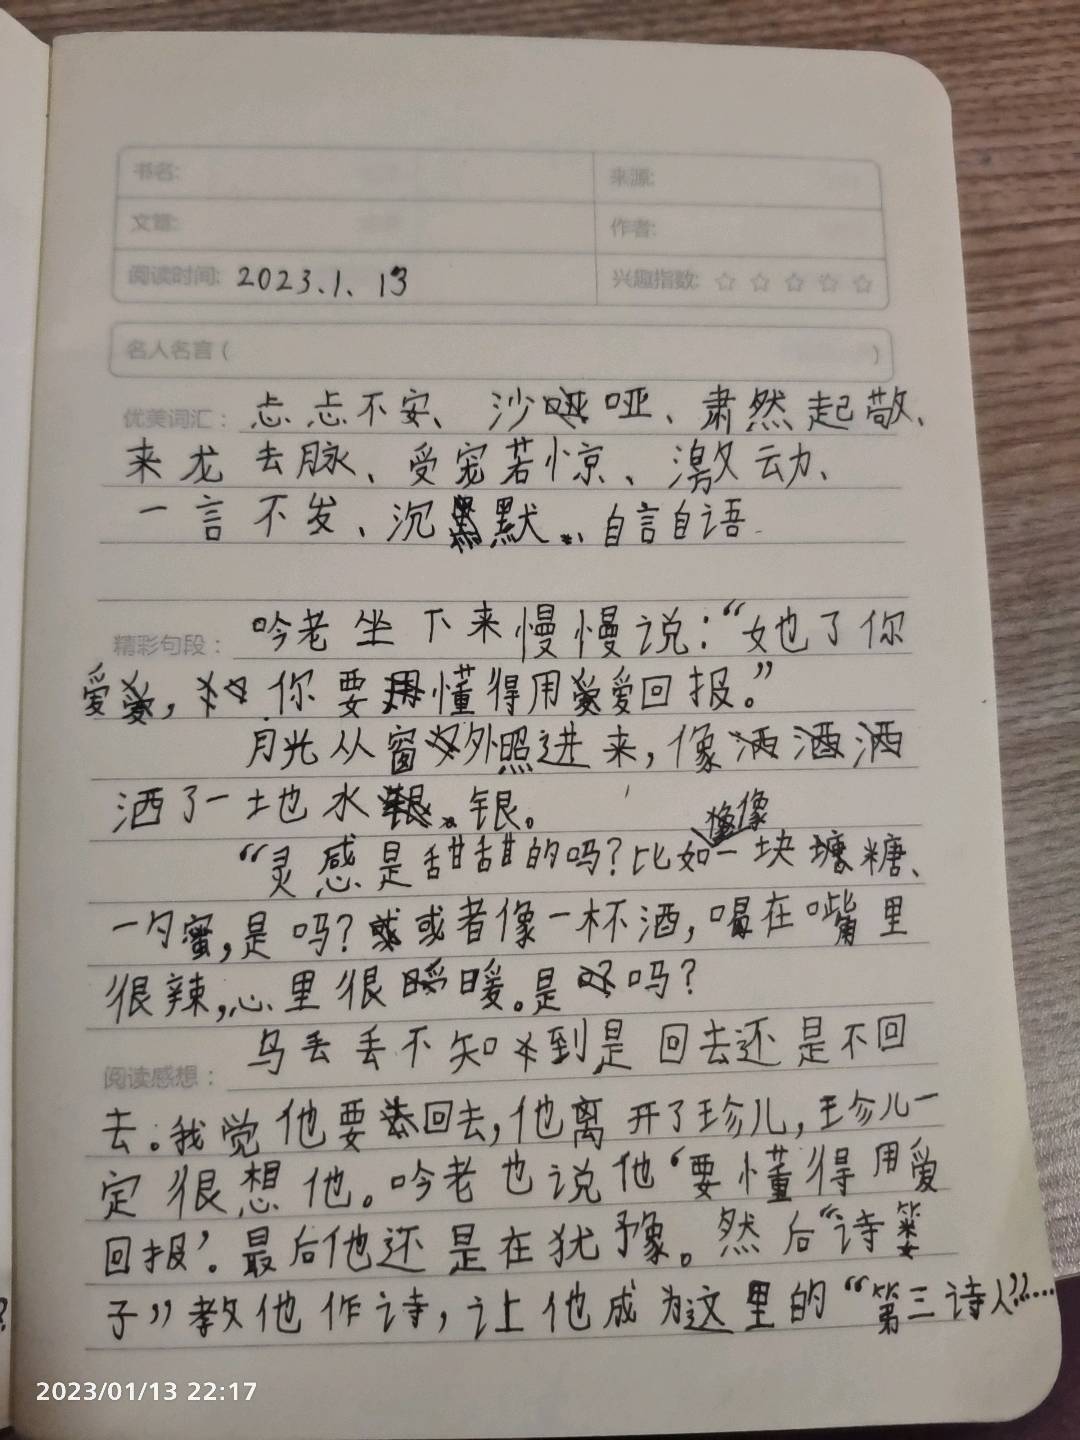 书名: 来源:
文章: 作者:
阅读时间: 2023.1.13 兴趣指数: ☆☆☆☆☆
名人名言( )
优美词汇: 忐忐不安、沙哑、肃然起敬、
来龙去脉、受宠若惊、激动、
一言不发、沉默、自言自语
精彩句段: 吟老坐下来慢慢说:“她了你
爱,你要懂得用爱回报。”
月光从窗外照进来,像洒
洒了一地水银。
“灵感是甜甜的吗?比如像一块糖、
一勺蜜,是吗?或者像一杯酒,喝在嘴里
很辣,心里很暖。是吗?
阅读感想: 乌丢丢不知到是回去还是不回
去。我觉他要回去,他离开了珍儿,珍儿一
定很想他。吟老也说他‘要懂得用爱
回报’。最后他还是在犹豫。然后“诗篓
子”教他作诗,让他成为这里的“第三诗人”……
2023/01/13 22:17